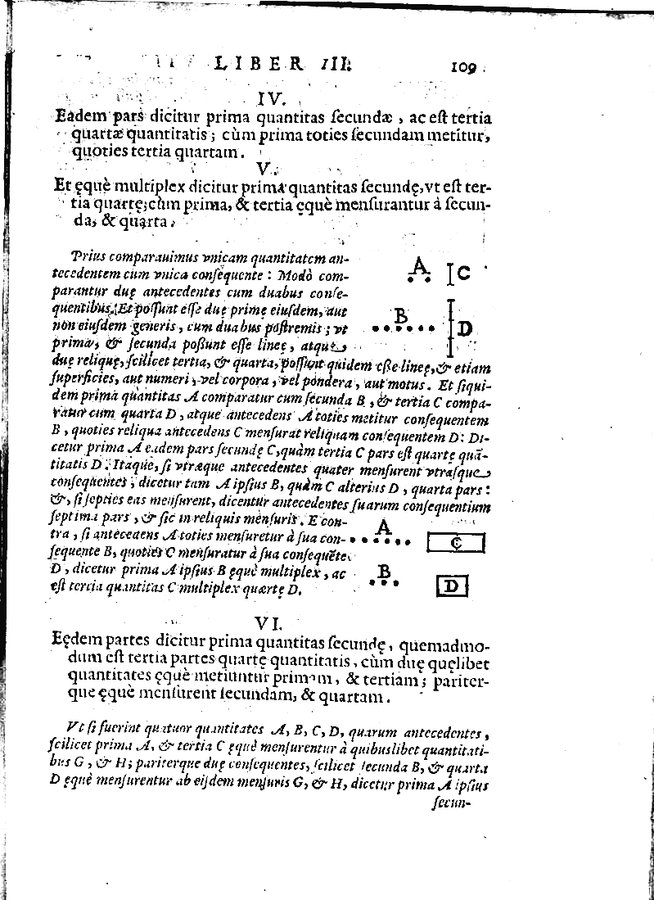 LIBER III. 109
IV.
Eadem pars dicitur prima quantitas secundæ, ac est tertia
quartæ quantitatis; cùm prima toties secundam metitur,
quoties tertia quartam.
V.
Et ęquè multiplex dicitur prima quantitas secundę, vt est ter-
tia quartę; cùm prima, & tertia ęquè mensurantur à secun-
da, & quarta.
Prius comparauimus vnicam quantitatem an-
tecedentem cum vnica consequente: Modò com-
parantur duę antecedentes cum duabus conse-
quentibus. Et possunt esse duę primę eiusdem, aut
non eiusdem generis, cum duabus postremis; vt
prima, & secunda possunt esse lineę, atque
duę reliquę, scilicet tertia, & quarta, possunt quidem esse lineę, & etiam
superficies, aut numeri, vel corpora, vel pondera, aut motus. Et siqui-
dem prima quantitas A comparatur cum secunda B, & tertia C compa-
ratur cum quarta D, atque antecedens A toties metitur consequentem
B, quoties reliqua antecedens C mensurat reliquam consequentem D: Di-
cetur prima A eadem pars secundę C, quàm tertia C pars est quartę quã-
titatis D. Itaque, si vtræque antecedentes quater mensurent vtrasque
consequentes; dicetur tam A ipsius B, quàm C alterius D, quarta pars:
&, si septies eas mensurent, dicentur antecedentes suarum consequentium
septima pars, & sic in reliquis mensuris. E con-
tra, si antecedens A toties mensuretur à sua con-
sequente B, quoties C mensuratur à sua consequẽte
D, dicetur prima A ipsius B ęquè multiplex, ac
est tertia quantitas C multiplex quartę D.
A C
B D
A C
B D
VI.
Eędem partes dicitur prima quantitas secundę, quemadmo-
dum est tertia partes quartę quantitatis, cùm duę quęlibet
quantitates ęquè metiuntur primam, & tertiam; pariter-
que ęquè mensurent secundam, & quartam.
Vt si fuerint quatuor quantitates A, B, C, D, quarum antecedentes,
scilicet prima A, & tertia C ęquè mensurentur à quibuslibet quantitati-
bus G, & H; pariterque duę consequentes, scilicet secunda B, & quarta
D ęquè mensurentur ab eisdem mensuris G, & H, dicetur prima A ipsius
secun-